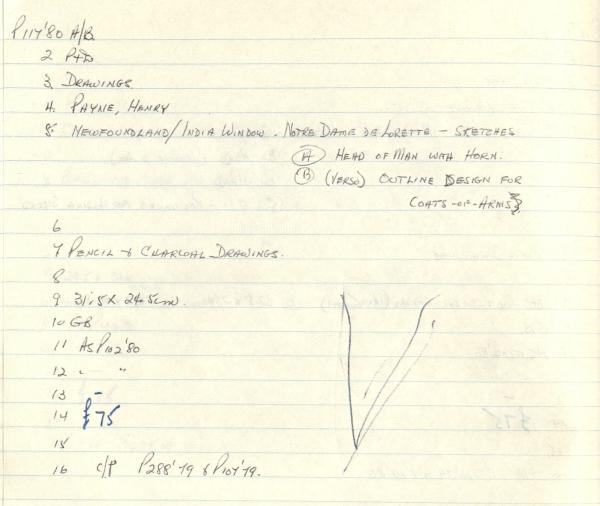 P117'80 A/B.
2 P+D
3 DRAWINGS.
4. PAYNE, HENRY
5. NEWFOUNDLAND/INDIA WINDOW. NOTRE DAME DE LORETTE - SKETCHES
(A) HEAD OF MAN WITH HORN.
(B) (VERSO) OUTLINE DESIGN FOR
COATS-OF-ARMS
6
7 PENCIL & CHARCOAL DRAWINGS.
8
9 31.5 X 24.5cm.
10 GB
11 AS P102'80
12 " "
13 -
14 £75
15
16 c/p P288'79 & P107'79.